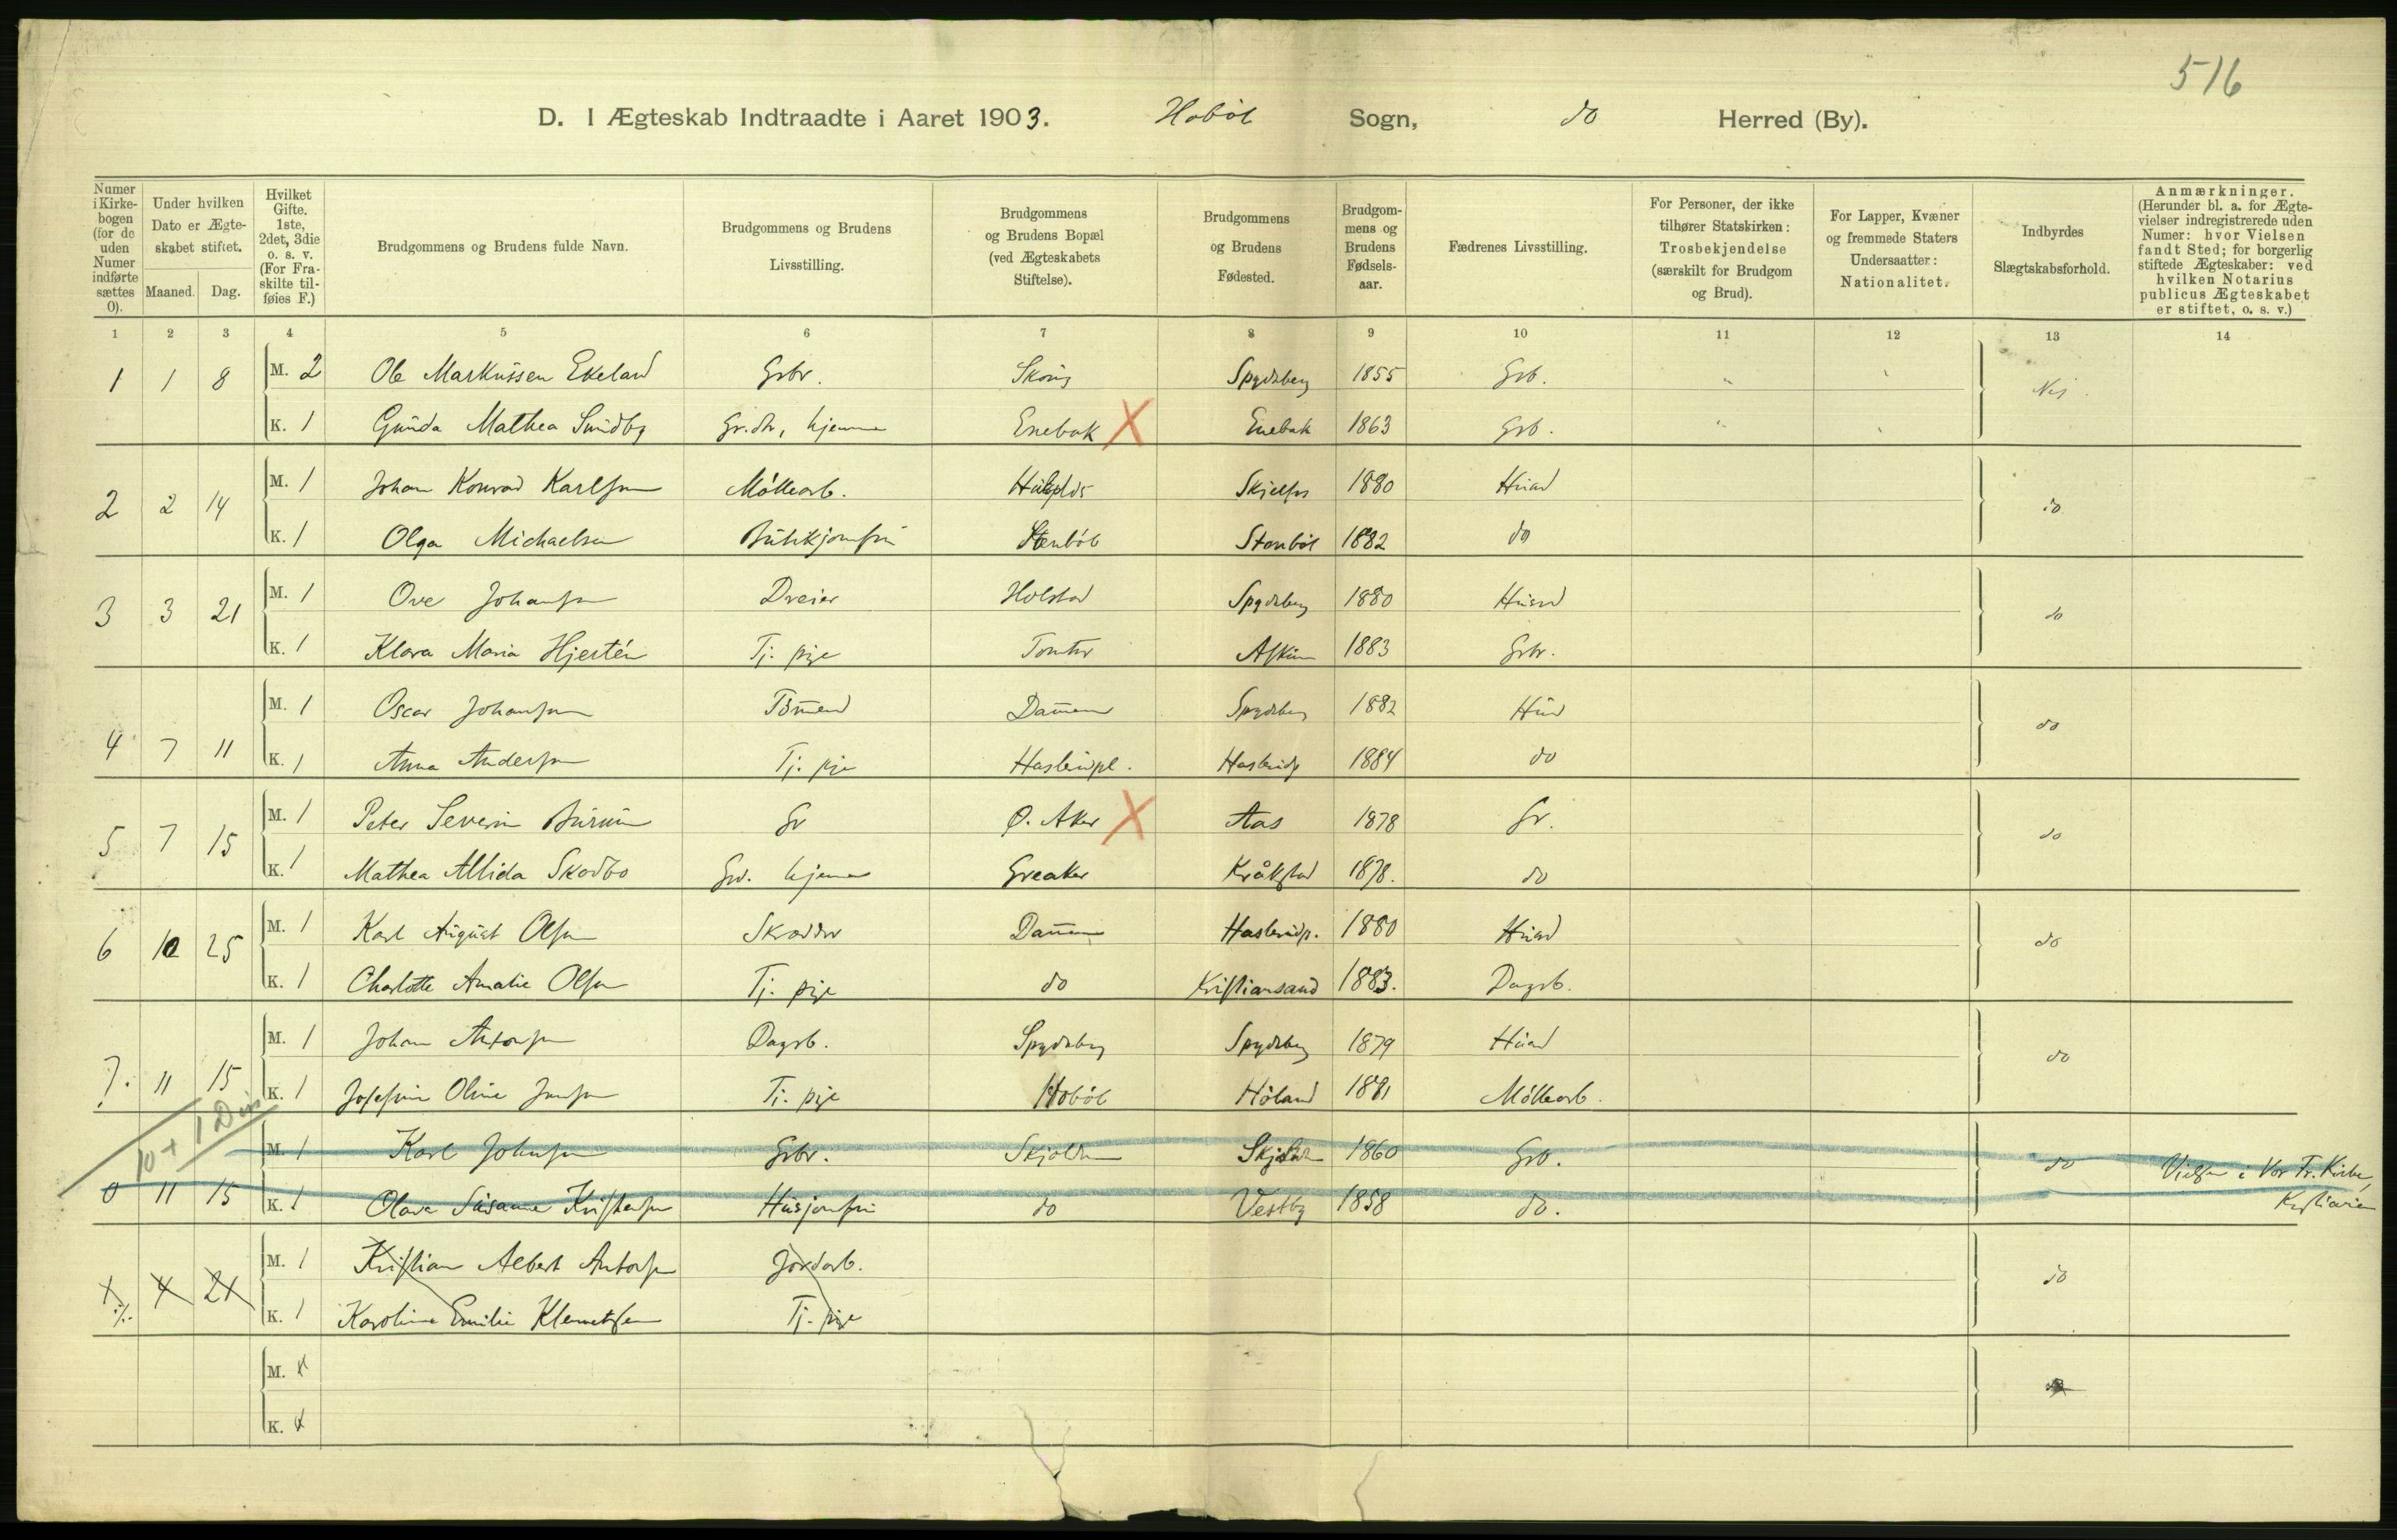 516
D. I Ægteskab Indtraadte i Aaret 1903. Hobøl Sogn, do Herred (By).
Numer i Kirkebogen (for de uden Numer indførte sættes 0). Under hvilken Dato er Ægteskabet stiftet. Maaned. Dag. Hvilket Gifte. 1ste, 2det, 3die o. s. v. (For Fraskilte tilføies F.) Brudgommens og Brudens fulde Navn. Brudgommens og Brudens Livsstilling. Brudgommens og Brudens Bopæl (ved Ægteskabets Stiftelse). Brudgommens og Brudens Fødested. Brudgommens og Brudens Fødselsaar. Fædrenes Livsstilling. For Personer, der ikke tilhører Statskirken: Trosbekjendelse (særskilt for Brudgom og Brud). For Lapper, Kvæner og fremmede Staters Undersaatter: Nationalitet. Indbyrdes Slægtskabsforhold. Anmærkninger. (Herunder bl. a. for Ægtevielser indregistrerede uden Numer: hvor Vielsen fandt Sted; for borgerlig stiftede Ægteskaber: ved hvilken Notarius publicus Ægteskabet er stiftet, o. s. v.)
1 2 3 4 5 6 7 8 9 10 11 12 13 14
1 1 8 M. 2 Ole Markussen Ekeland Grbr. Spydeberg 1855 Grb. Nei
K. 1 Gunda Mathea Smidby Gr.dtr, hjemme Enebak X Enebak 1863 Grb.
2 2 14 M. 1 Johan Konrad Karlsen Møllearb. Skiptvet 1880 Husmd do
K. 1 Olga Michaelsen Stenbøl Stenbøl 1882 do
3 3 21 M. 1 Ove Johansen Dreier Holstad Spydeberg 1880 Husmd do
K. 1 Klara Maria Hjertén Tj. pige Tomter Askim 1883 Grbr.
4 7 11 M. 1 Oscar Johansen Tømmermd Dammen Spydeberg 1882 Husmd do
K. 1 Anna Andersen Tj. pige 1884 do
5 7 15 M. 1 Peter Severin Burum Gr Ø. Aker X Aas 1878 Gr. do
K. 1 Mathea Alida Skodbo hjemme Greaker Kråkstad 1878. do
6 10 25 M. 1 Karl August Olsen Skrædder Dammen 1880 Husmd do
K. 1 Charlotte Amalie Olsen Tj. pige do Kristiansand 1883. Dagarb.
7. 11 15 M. 1 Johan Antonsen Dagarb. Spydeberg Spydeberg 1879 Husmd do
K. 1 Josefine Oline Jensen Tj. pige Hobøl Høland 1881 Møllearb.
10 + 1 Dis
M. 1 Karl Johnsen Grbr. Skjolden Skjolden 1860 Grb. do Vielsen i Vor Fr. Kirke,
0 11 15 K. 1 Olava Susanne Kristensen Husjomfru do Vestby 1858 do. Kristiania
4 21 M. 1 Kristian Albert Antonsen Jordarb. do
K. 1 Karoline Emilie Klemetsen Tj. pige
M.
K.